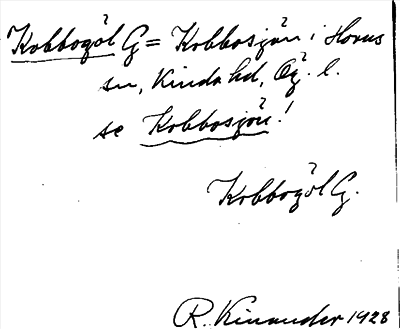 Kobbogöl G = Kobbosjön i Horns
sn, Kinda hd, Ög. l.
se Kobbosjön!
Kobbogöl G.
R. Kinander 1928